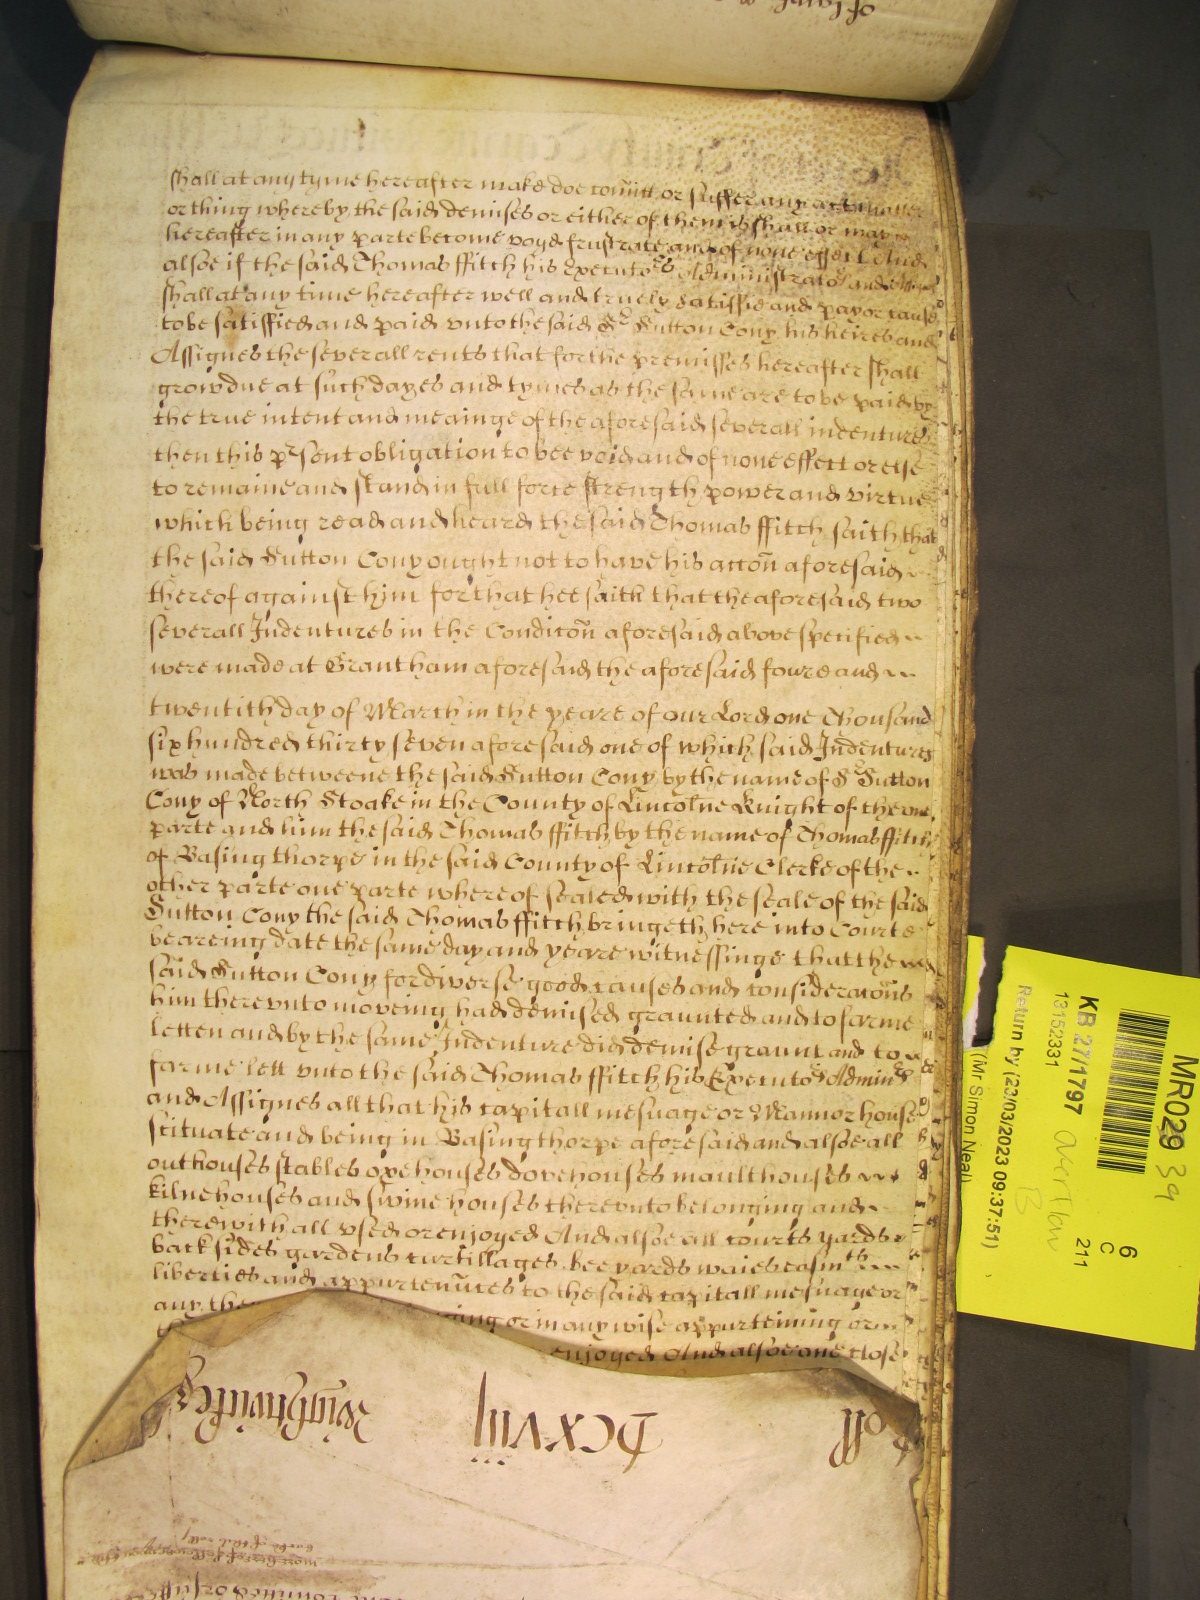 shall at any tyme hereafter make doe com̄itt or suffer any act matter
or thing whereby the said demises or either of them is shall or may
hereafter in any parte become voyd frustrate and of none effect And
alsoe if the said Thomas ffitch his Executors Administrators and
shall at any time hereafter well and truely satisfie and pay or cause
to be satisfied and paid vnto the said Sr Sutton Cony his heires and
Assignes the severall rents that for the premisses hereafter shall
grow due at such dayes and tymes as the same are to be paid by
the true intent and meainge of the aforesaid severall indentures
then this prsent obligation to bee void and of none effect or else
to remaine and stand in full force strength power and virtue
which being read and heard the said Thomas ffitch saith that
the said Sutton Cony ought not to have his accon̄ aforesaid
thereof against him for that hee saith that the aforesaid two
severall Indentures in the Condicon̄ aforesaid above specified
were made at Grantham aforesaid the aforesaid foure and
twentith day of March in the yeare of our Lord one Thousand
six hundred thirty seven aforesaid one of which said Indentures
was made betweene the said Sutton Cony by the name of Sr Sutton
Cony of North Stoake in the County of Lincolne Knight of the one
parte and him the said Thomas ffitch by the name of Thomas ffitch
of Basingthorpe in the said County of Lincolne Clerke of the
other parte one parte whereof sealed with the seale of the said
Sutton Cony the said Thomas ffitch bringeth here into Courte
beareing date the same day and yeare witnessinge that the
said Sutton Cony for diverse good causes and consideracon̄s
him therevnto moveing had demised graunted and to farme
letten and by the same Indenture did demise graunt and to
farme lett vnto the said Thomas ffitch his Executors Adminrs
and Assignes all that his capitall mesuage or Mannor house
scituate and being in Basingthorpe aforesaid and alsoe all
outhouses stables oxehouses dovehouses maulthouses
kilnehouses and swine houses therevnto belonging and
therewithall vsed or enjoyed And alsoe all courts yards
backsides gardens curtillages bee yards waies easmts
liberties and appurtenn̄ces to the said capitall mesuage or
any the
ging or in any wise appurteining or
enjoyed And alsoe one close
Roll Dcxviij
MR029 39
6
C
211
KB 27/1797 overflow
B
13152331
Return by (23/03/2023 09:37:51)
(Mr Simon Neal)